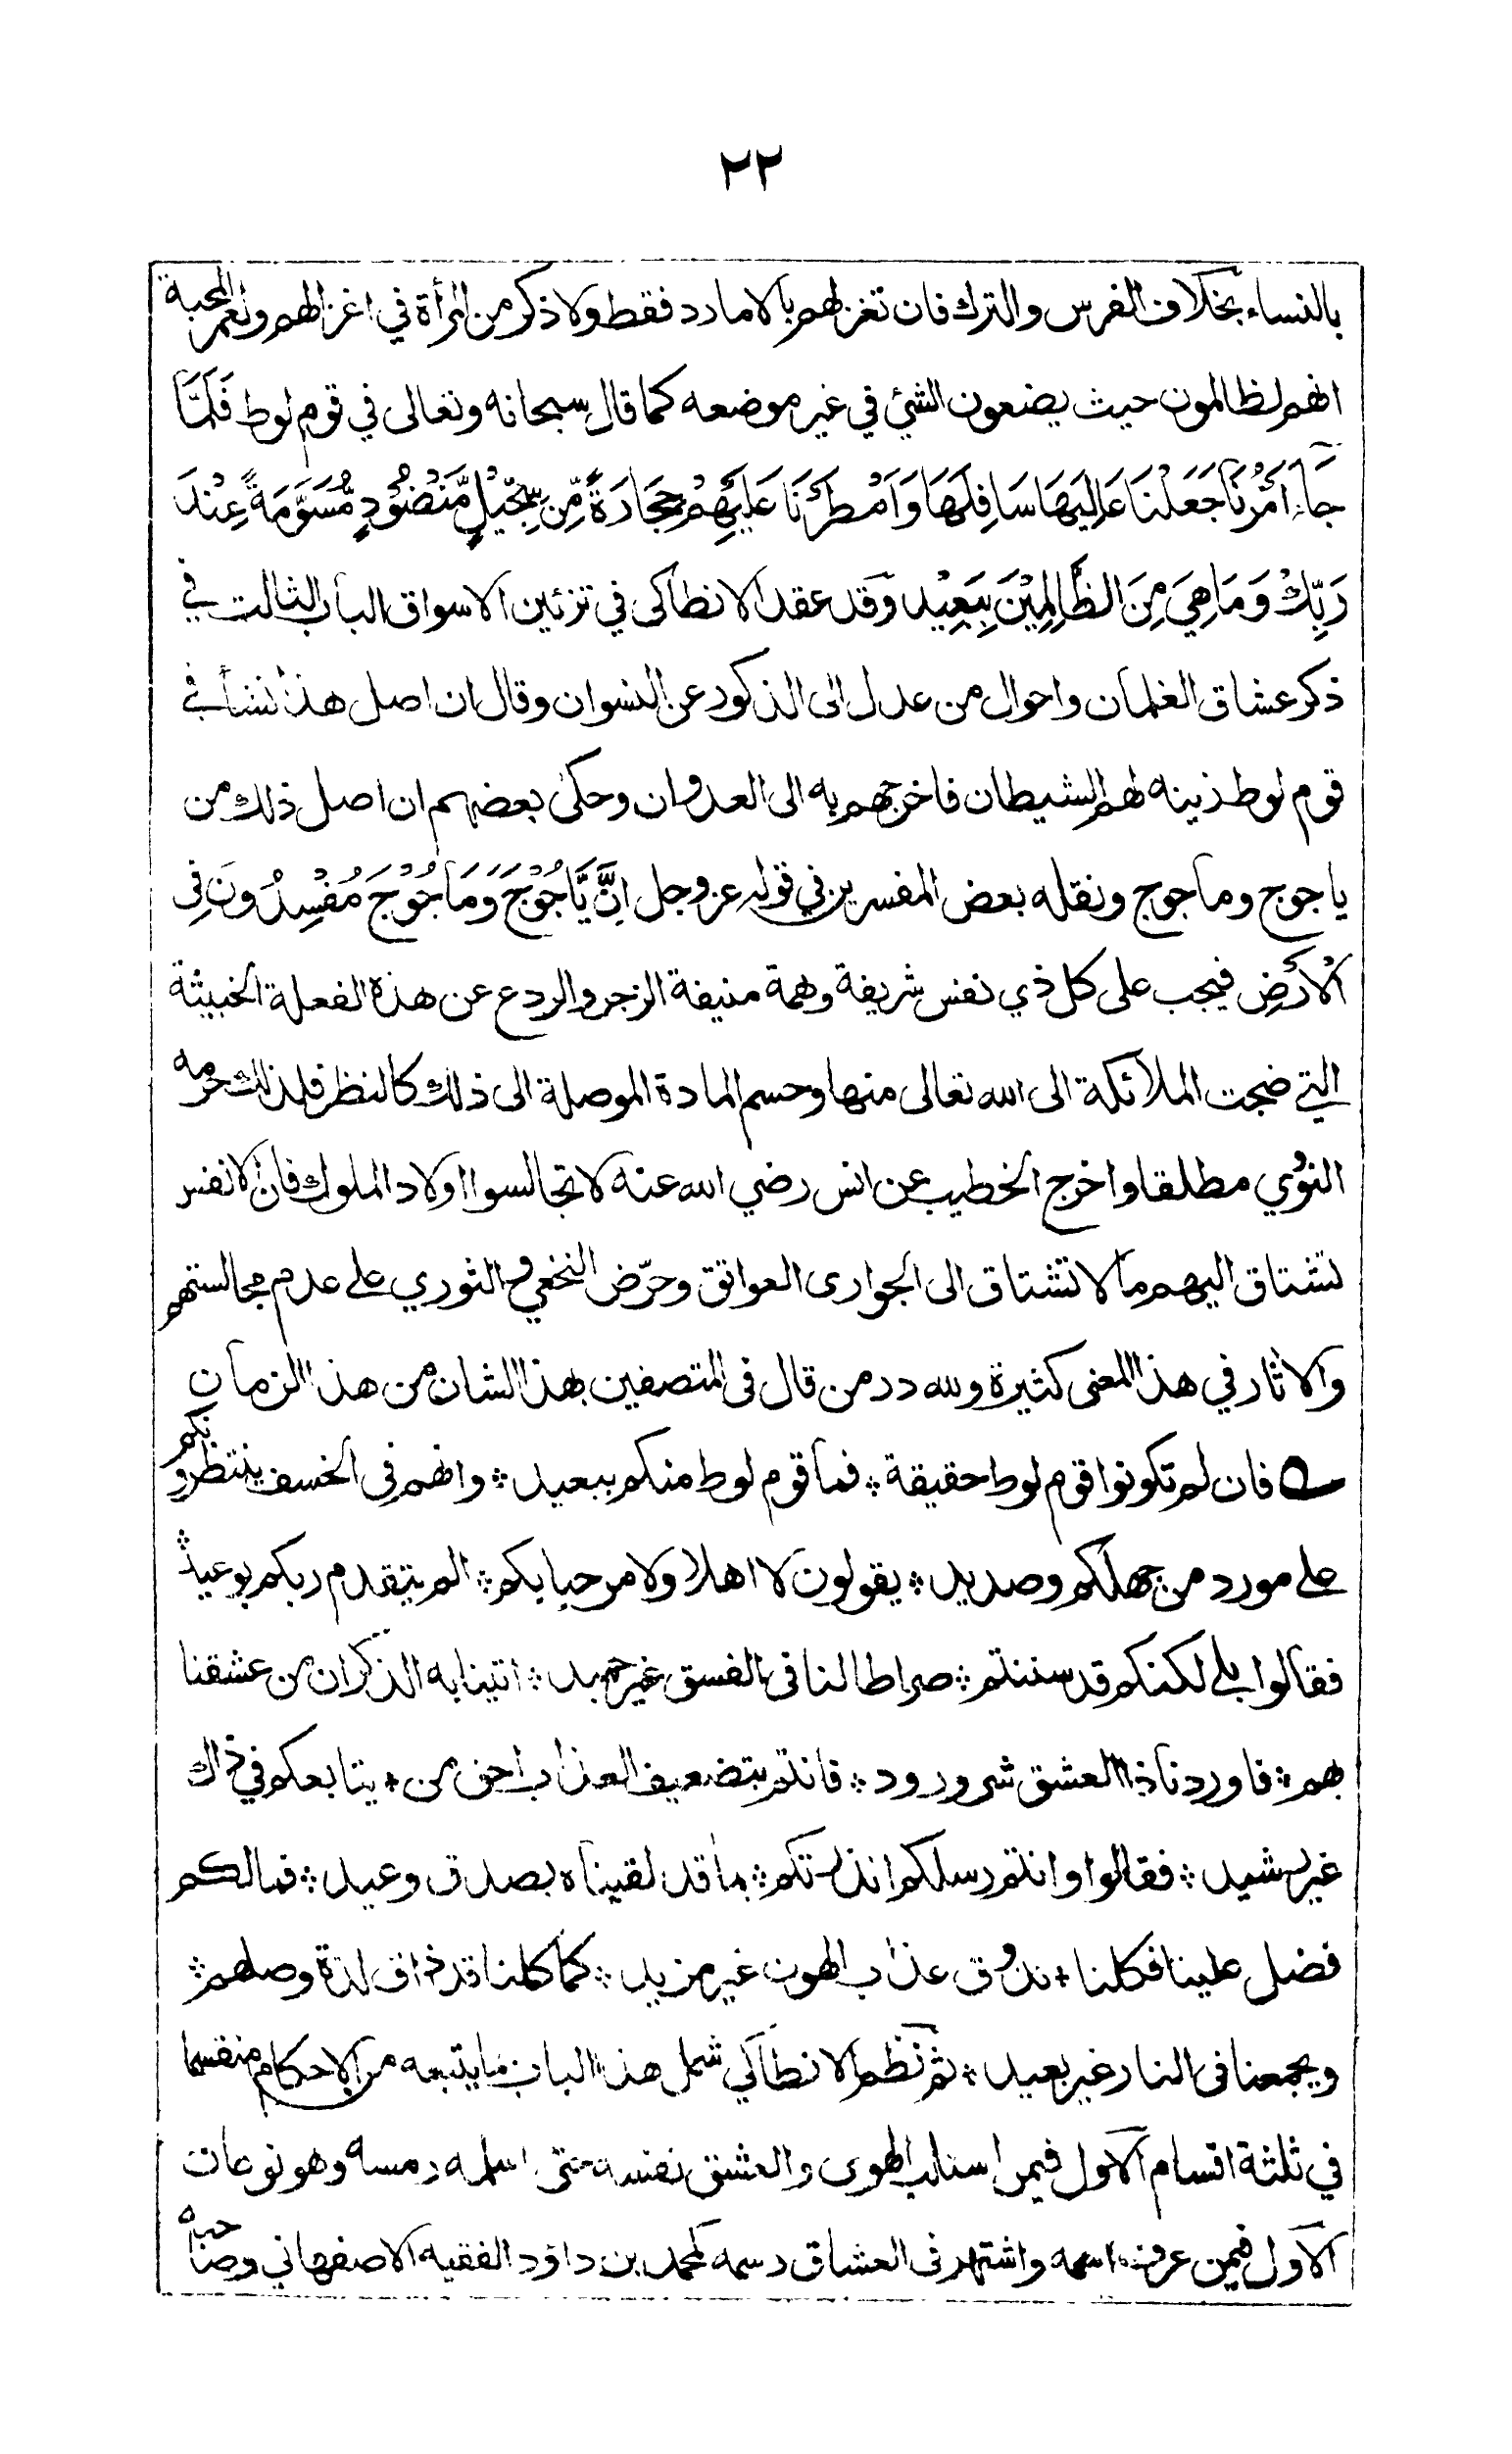 ٢٢
بالنساء بخلاف الفرس والترك فان تغزلهم بالامارد فقط ولا ذكر من المرأة في اغزالهم ولعمر المحبة
انهم لظالمون حيث يضعون الشئ في غير موضعه كما قال سبحانه وتعالى في قوم لوط فَلَمَّا
جَآءَ اَمْرُنَا جَعَلْنَا عَالِيَهَا سَافِلَهَا وَاَمْطَرْنَا عَلَيْهِمْ حِجَارَةً مِّن سِجِّيْلٍ مَّنْضُوْدٍ مُّسَوَّمَةً عِنْدَ
رَبِّكَ وَمَا هِيَ مِنَ الظَّالِمِيْنَ بِبَعِيْد وقد عقد الانطاكى في تزئين الاسواق الباب الثالث في
ذكر عشاق الغلمان واحوال من عدل الى الذكور عن النسوان وقال ان اصل هذا نشأ في
قوم لوط زينه لهم الشيطان فاخرجهم به الى العدوان وحكى بعضهم ان اصل ذلك من
ياجوج وماجوج ونقله بعض المفسرين في قوله عزوجل اِنَّ يَاْجُوْجَ وَمَاْجُوْجَ مُفْسِدُوْنَ فِى
الْاَرْضِ فيجب على كل ذي نفس شريفة وهمة منيفة الزجر والردع عن هذه الفعلة الخبيثة
التي ضجت الملائكة الى الله تعالى منها وحسم المادة الموصلة الى ذلك كالنظر فلذلك حرمه
النووي مطلقا واخرج الخطيب عن انس رضي الله عنه لا تجالسوا اولاد الملوك فان الانفس
تشتاق اليهم ما لا تشتاق الى الجوارى العواتق وحرّض النخعي والثوري على عدم مجالستهم
والاثار في هذا المعنى كثيرة ولله در من قال فى المتصفين بهذا الشان من هذا الزمان
فان لم تكونوا قوم لوط حقيقة ؞ فما قوم لوط منكم ببعيد ؞ وانهم فى الخسف ينتظرونكم
على مورد من جهلكم وصديد ؞ يقولون لا اهلا ولا مرحبا بكم ؞ الم يتقدم ربكم بوعيد ؞
فقالوا بلى لكنكم قد سننتم ؞ صراطا لنا فى الفسق غير حميد ؞ اتينا به الذكران من عشقنا
بهم ؞ فاوردنا ذا العشق شر ورود ؞ فانتم بتضعيف العذاب احق من ؞ يتابعكم في ذاك
غير رشيد ؞ فقالوا وانتم رسلكم انذرتكم ؞ بما قد لقيناه بصدق وعيد ؞ فما لكم
فضل علينا فكلنا ؞ نذوق عذاب الهون غير مزيد ؞ كما كلنا قد ذاق لذة وصلهم ؞
ويجمعنا فى النار غير بعيد ؞ ثم نظم الانطاكي شمل هذا الباب بما يتبعه من الاحكام منقسما
في ثلثة اقسام الاول فيمن استلب الهوى والعشق نفسه حتى اسلمه رمسه وهو نوعان
الاول فيمن عرف اسمه واشتهر فى العشاق رسمه كمحمد بن داؤد الفقيه الاصفهاني وصاحبه